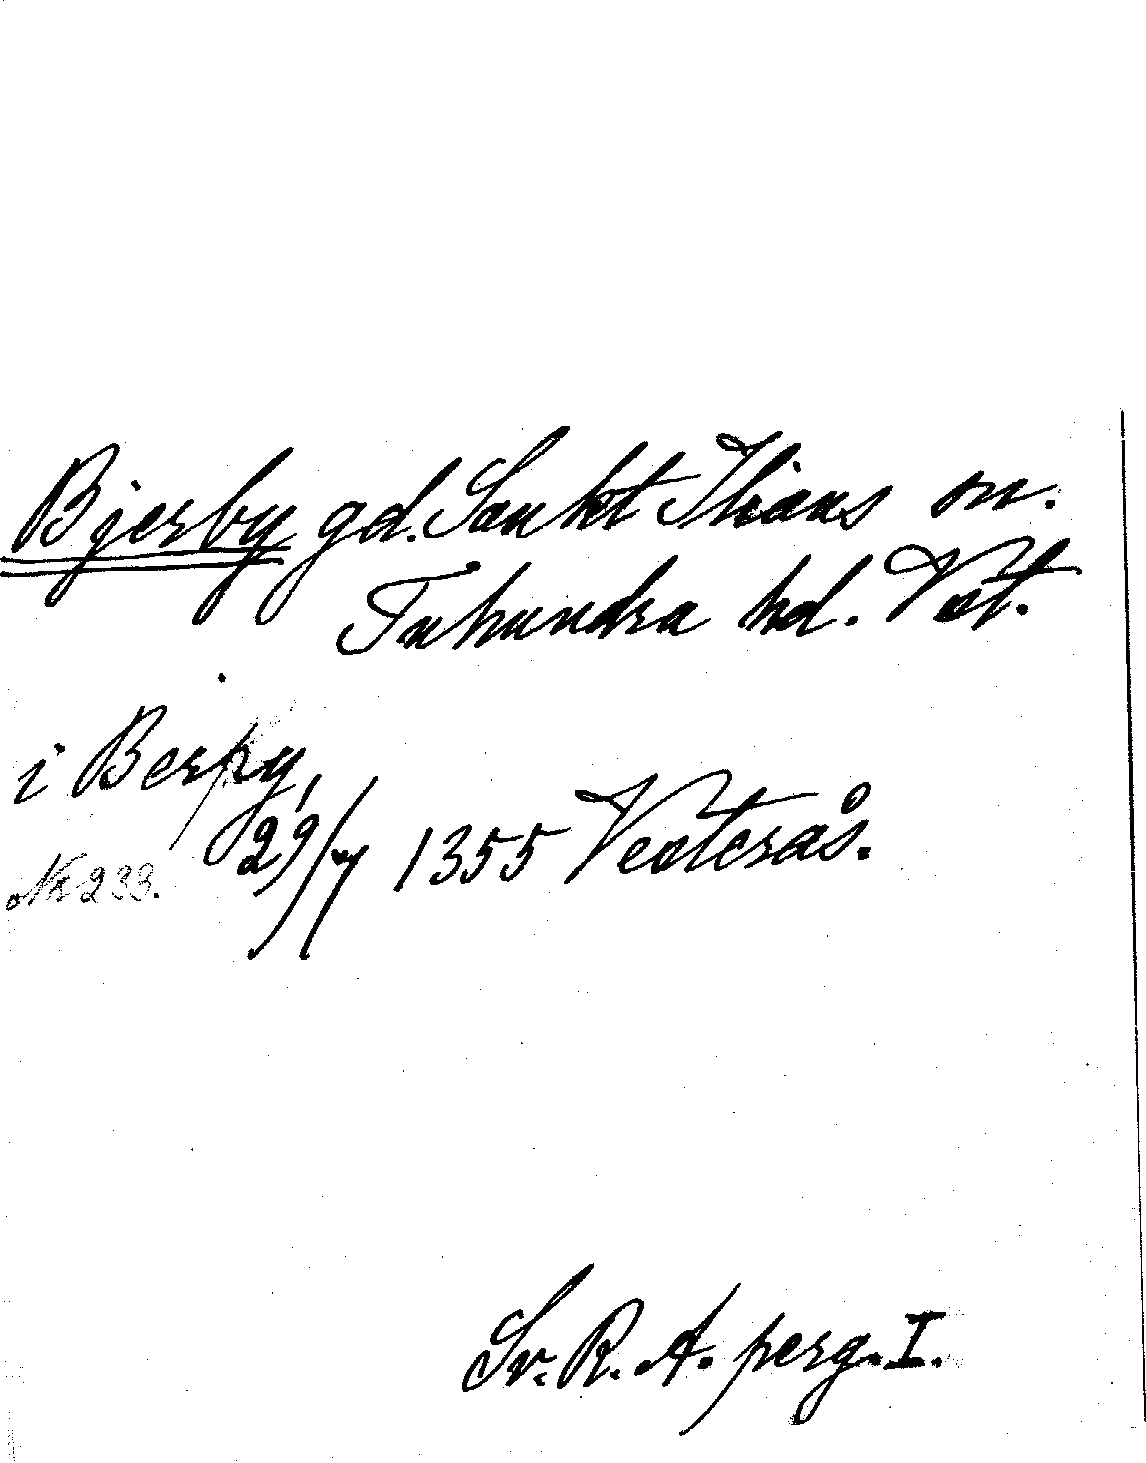 Bjerby gd. Sankt Ilians sn.
Tuhundra hd. Vstl.
i Berby,
29/7 1355 Vesterås.
Nr 233.
Sv. R. A. perg. I.